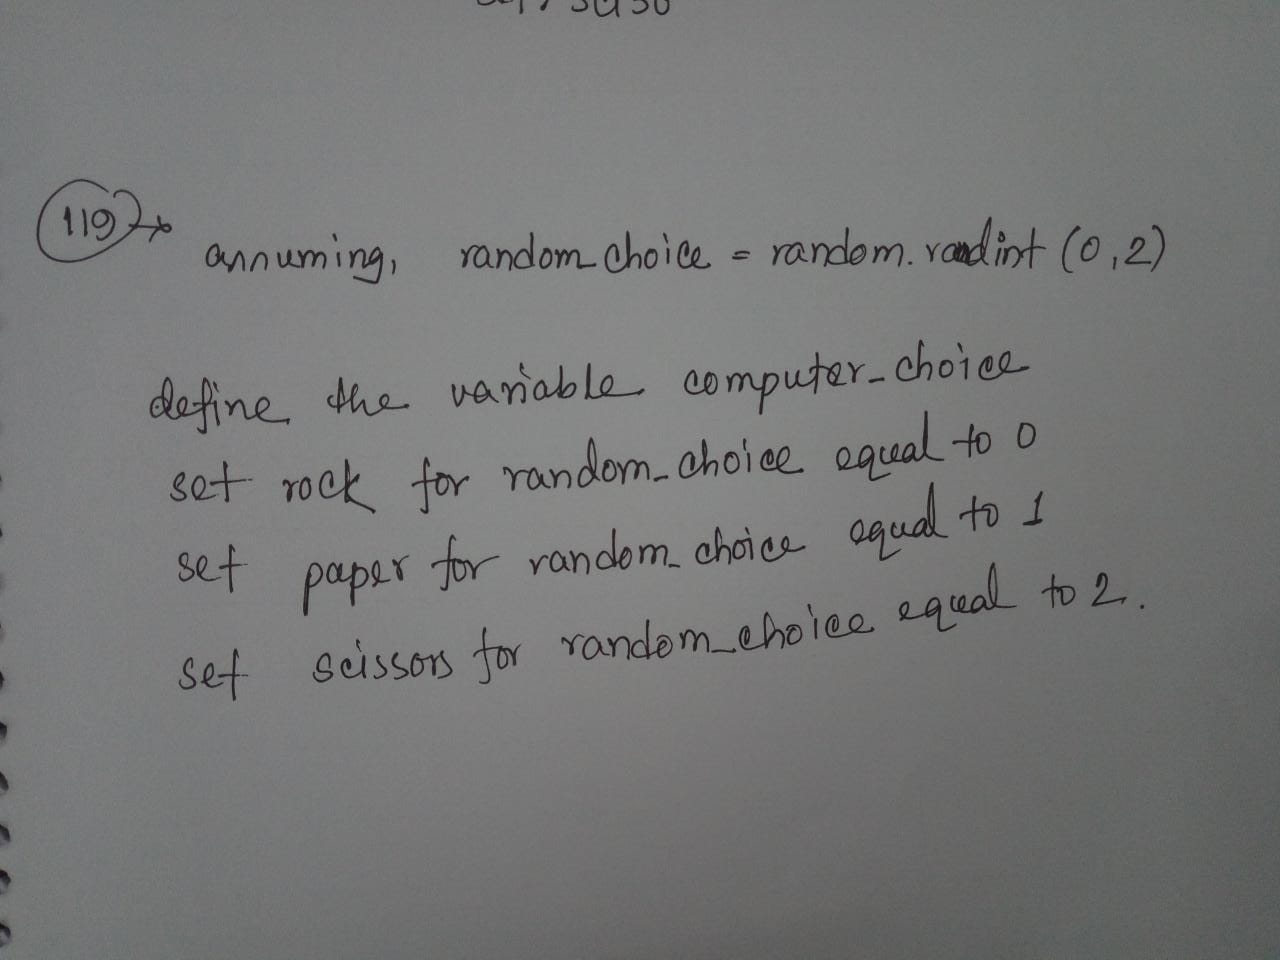 119 →
annuming, random_choice = random.randint (0,2)
define the variable computer_choice
set rock for random_choice equal to 0
set paper for random_choice equal to 1
set scissors for random_choice equal to 2.